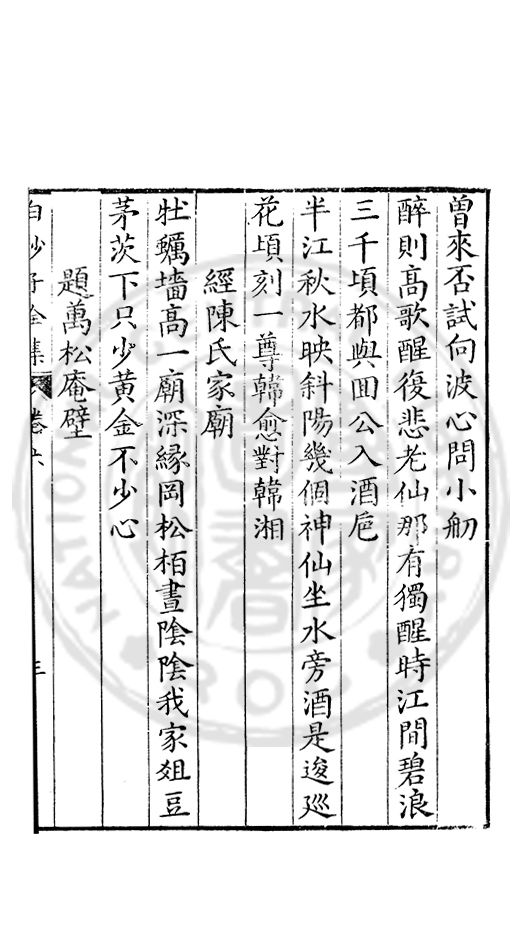 曾來否試向波心問小舠
醉則高歌醒復悲老仙那有獨醒時江間碧浪
三千頃都與囬公入酒巵
半江秋水映斜陽幾個神仙坐水旁酒是逡巡
花頃刻一尊韓愈對韓湘
經陳氏家廟
牡蠣墻高一廟深緣岡松栢晝陰陰我家爼豆
茅茨下只少黃金不少心
題萬松庵壁
白沙子全集 卷六 三